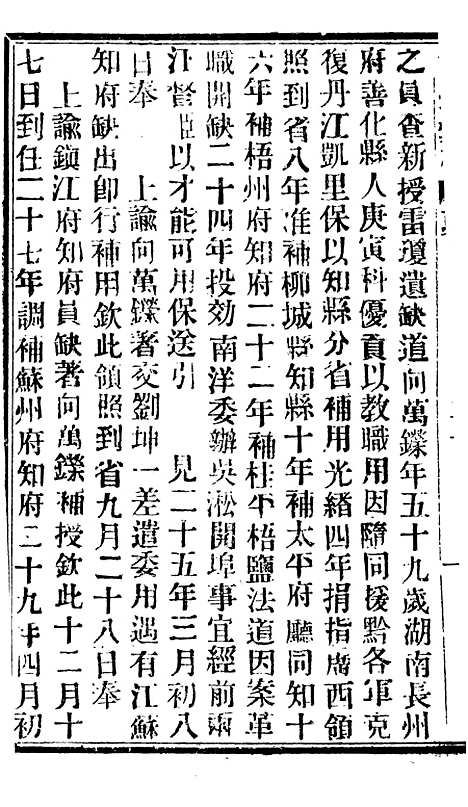 之員查新授雷瓊遺缺道向萬鑅年五十九歲湖南長州
府善化縣人庚寅科優貢以教職用因隨同援黔各軍克
復丹江凱里保以知縣分省補用光緒四年捐指廣西領
照到省八年准補柳城縣知縣十年補太平府廳同知十
六年補梧州府知府二十二年補桂平梧鹽法道因案革
職開缺二十四年投効南洋委辦吳淞開埠事宜經前兩
江督臣以才能可用保送引 見二十五年三月初八
日奉 上諭向萬鑅著交劉坤一差遣委用遇有江蘇
知府缺出卽行補用欽此領照到省九月二十八日奉
上諭鎮江府知府員缺著向萬鑅補授欽此十二月十
七日到任二十七年調補蘇州府知府二十九年四月初